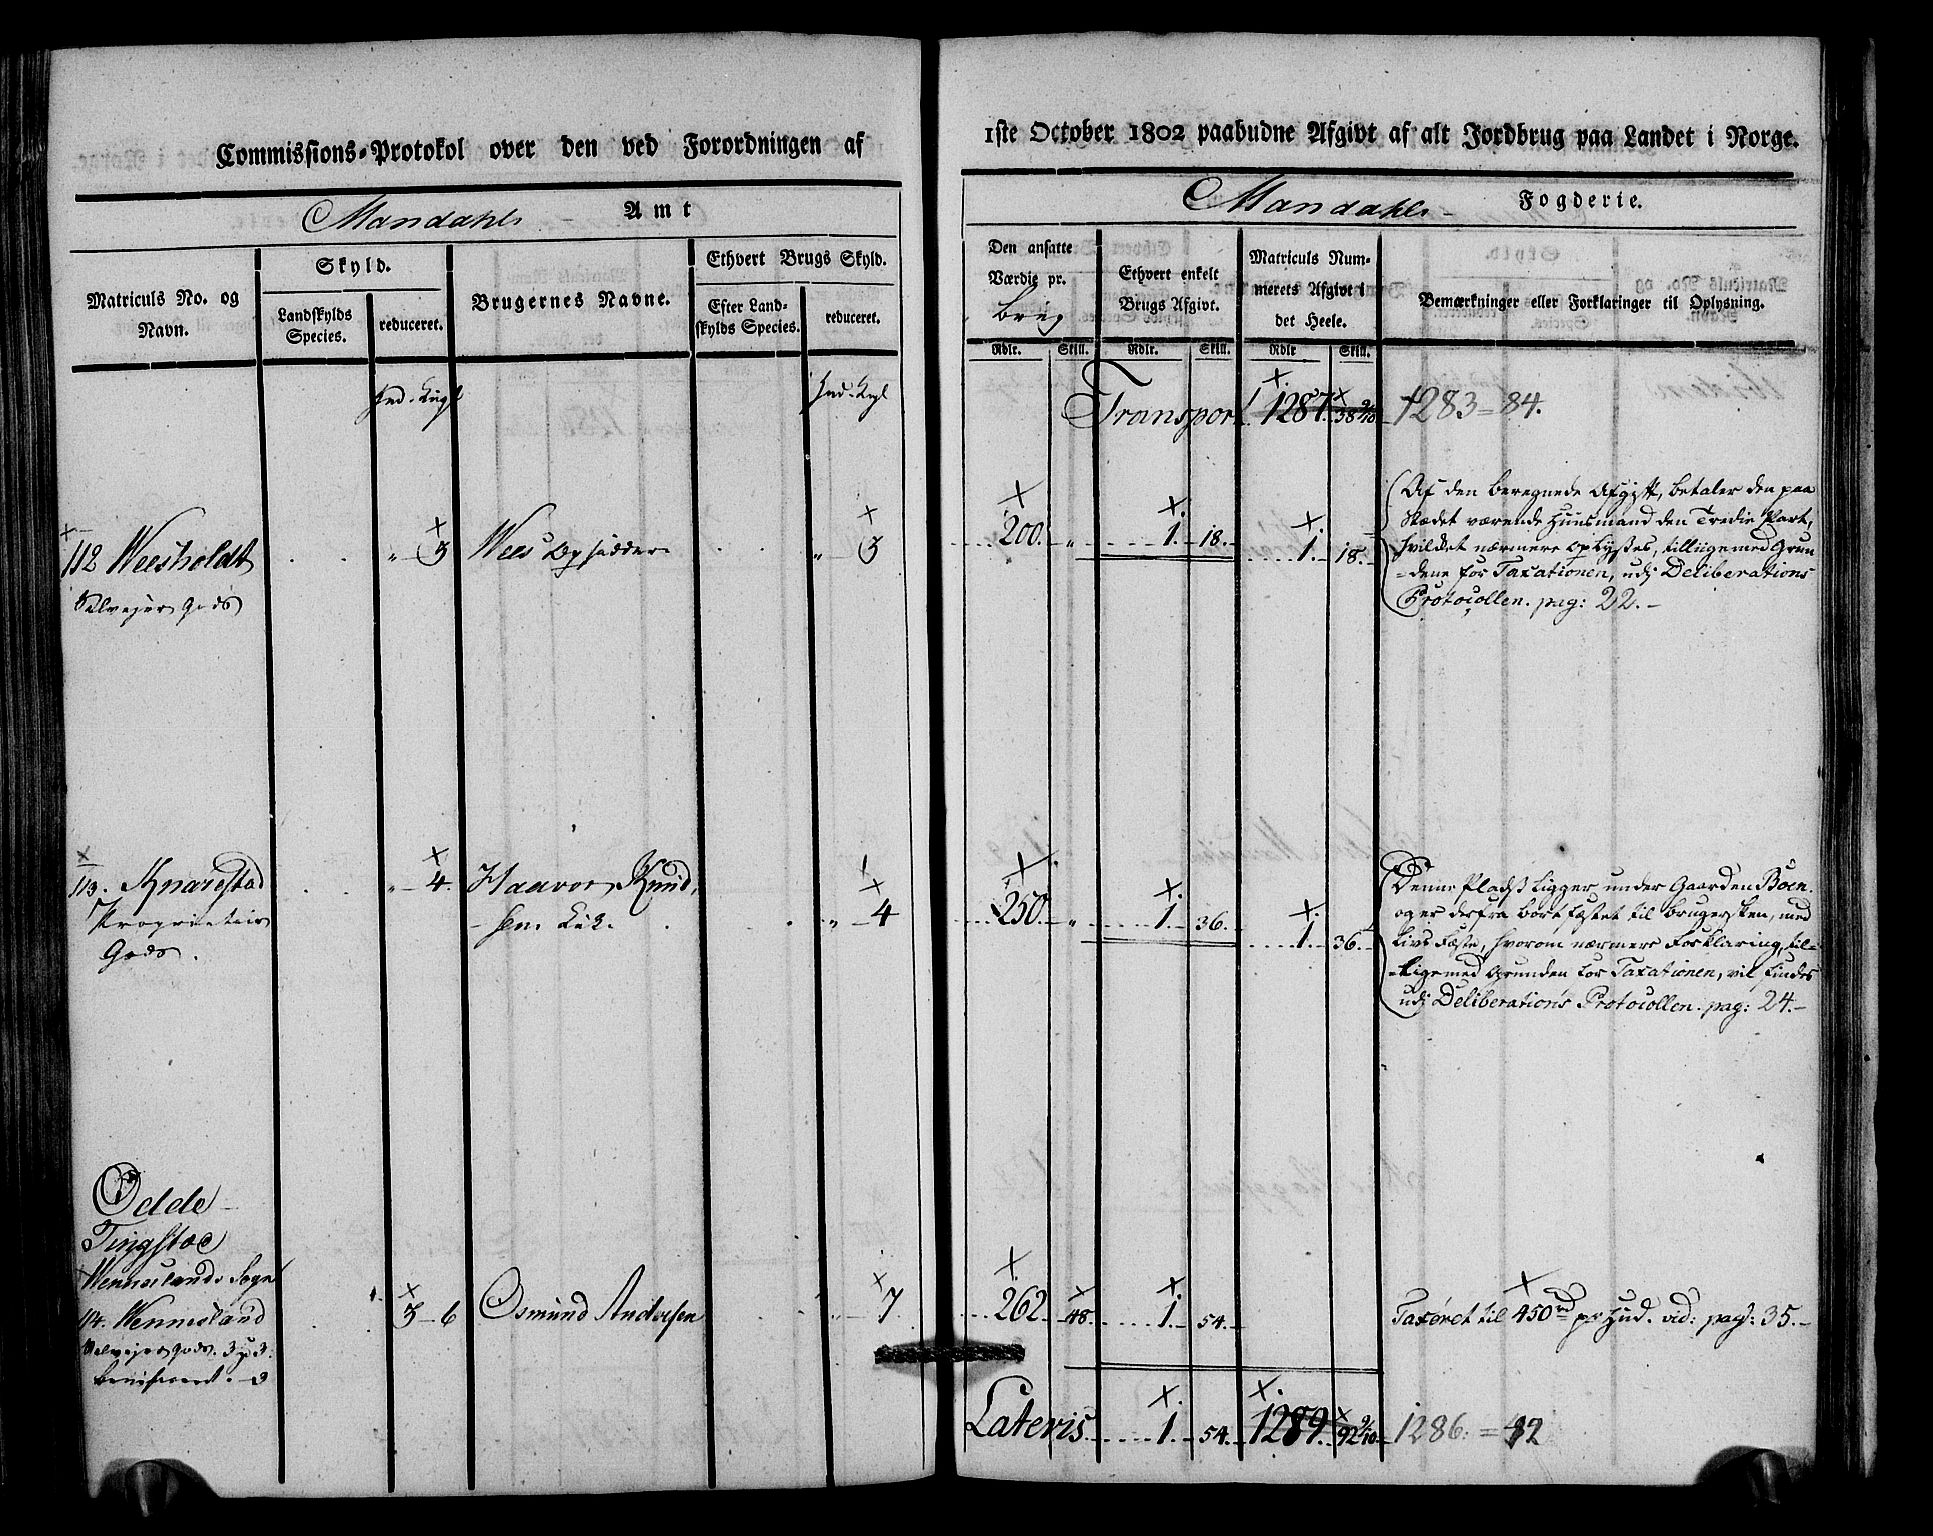 Commissions-Protokol over den ved Forordningen af
Mandahls Amt
Matriculs No. og Navn.
Skyld.
Landskylds Species.
reduceret.
Brugernes Navne.
Ethvert Brugs Skyld.
Efter Landskylds Species.
reduceret.
112 Weesholdt " 3 Wees Opsidder " 3
Selvejer Gods
113. Knarestad " 4. Haavor Knud, " 4
Proprietair sen
Gods.
Odde
Tingstæd
Wenneslands Sogn
114. Wennesland 3 6 Osmund Andersen " 7
Selvejer Gods. 3 3.
1ste October 1802 paabudne Afgivt af alt Jordbrug paa Landet i Norge.
Mandahls Fogderie.
Den ansatte Værdie pr. brug
Ethvert enkelt Brugs Afgivt.
Matriculs Nummerets Afgivt i det Heele.
Bemærkninger eller Forklaringer til Oplysning.
Rdlr. Skill. Rdlr. Skill. Rdlr Skill.
Transport 1287. 38 1283 = 84.
200. " 1. 18. 1. 18.
Af den beregnede Afgift, betaler den paa
Stædet værende Huusmand den Tredie Part,
hvilket nærmere oplyses, tilligemed Grun
=dene for Taxationen, udi Deliberations
Protocollen. pag: 22.-
250. " 1. 36. 1. 36.
Denne Plads ligger under Gaarden Boen.
og er derfra bortfæstet til brugersken, med
Livs Fæste, hvorom nærmere Forklaring, til=
=ligemed Grunden for Taxationen, vil findes
udi Deliberations Protocollen. pag: 24.-
262 48. 1. 54. Taxeret til 450 rd pr Hud. vid: pag: 35.-
Lateris 1. 54. 1289. 92 1286. = 42